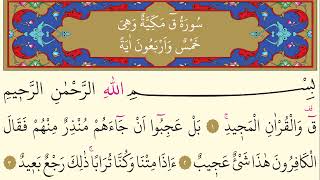 سُورَةُ قٓ مَكِّيَّةٌ وَهِيَ
خَمْسٌ وَاَرْبَعُونَ اٰيَةً
بِسْمِ اللّٰهِ الرَّحْمٰنِ الرَّحٖيمِ
قٓ وَالْقُرْاٰنِ الْمَجٖيدِ ﴿١﴾ بَلْ عَجِبُٓوا اَنْ جَٓاءَهُمْ مُنْذِرٌ مِنْهُمْ فَقَالَ
الْكَافِرُونَ هٰذَا شَيْءٌ عَجٖيبٌ ﴿٢﴾ ءَاِذَا مِتْنَا وَكُنَّا تُرَابًا ذٰلِكَ رَجْعٌ بَعٖيدٌ ﴿٣﴾